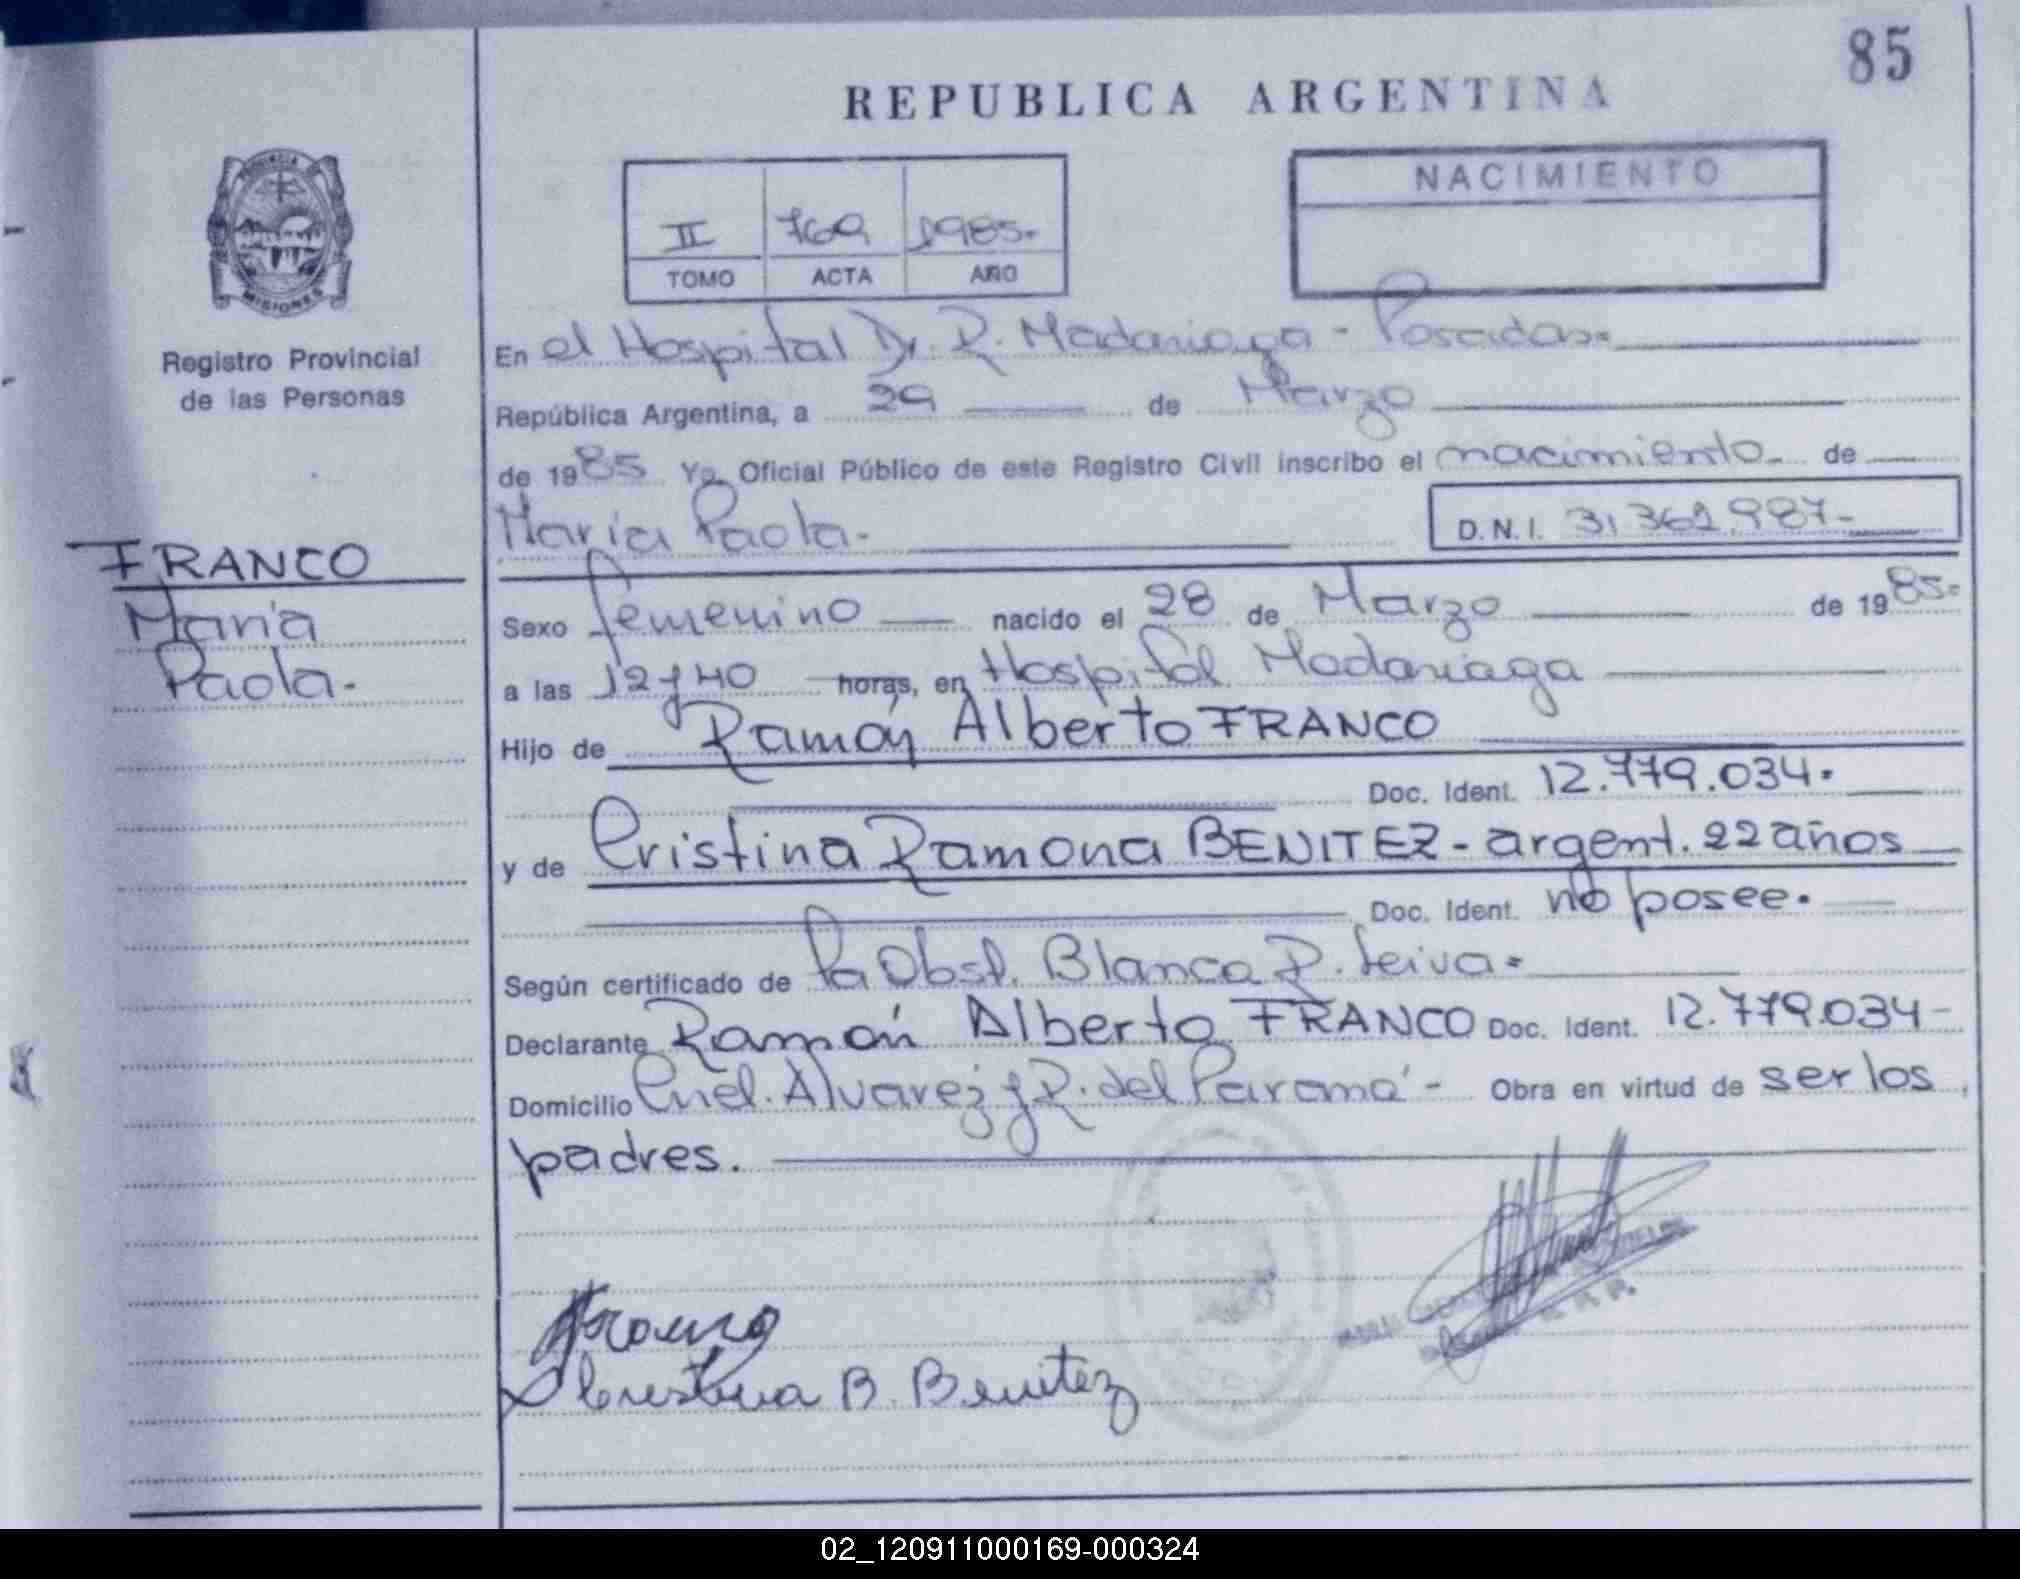 85
REPUBLICA ARGENTINA
PROVINCIA
MISIONES
Registro Provincial
de las Personas
II 769 1985.
TOMO ACTA AÑO
NACIMIENTO
En el Hospital Dr. R. Madariaga - Posadas.
República Argentina, a 29 de Marzo
de 1985 Yo, Oficial Público de este Registro Civil inscribo el nacimiento de
María Paola. D.N.I. 31.362.987-
FRANCO
María
Paola.
Sexo femenino nacido el 28 de Marzo de 1985.
a las 12 y 40 horas, en Hospital Madariaga
Hijo de Ramón Alberto FRANCO
Doc. Ident. 12.779.034.
y de Cristina Ramona BENITEZ - argent. 22 años
Doc. Ident. no posee.
Según certificado de la Obst. Blanca R. Leiva.
Declarante Ramón Alberto FRANCO Doc. Ident. 12.779.034-
Domicilio Cnel. Alvarez y R. del Paraná - Obra en virtud de ser los
padres.
Franco
Cristina B. Benitez
02_120911000169-000324